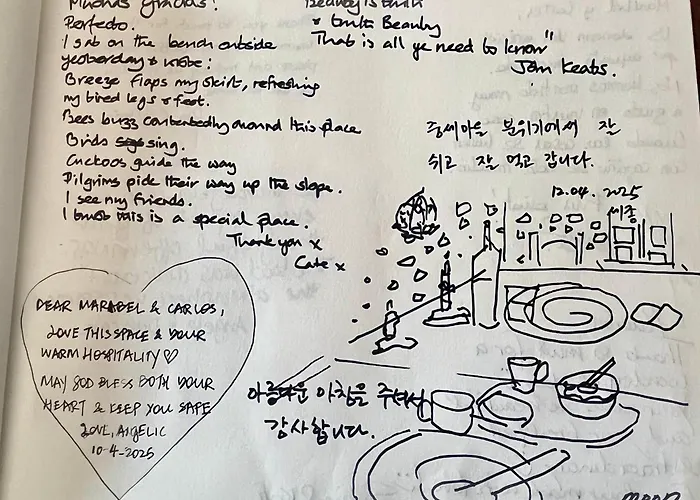 Muchas Gracias!
Perfecto.
I sat on the bench outside
yesterday & wrote:
Breeze flaps my skirt, refreshing
my tired legs & feet.
Bees buzz contentedly around this place
Birds sing.
Cuckoos guide the way
Pilgrims pick their way up the slope.
I see my friends.
I trust this is a special place.
Thank you x
Cate x
Beauty is truth
& truth Beauty
That is all ye need to know"
John Keats.
중세마을 분위기에서 잘
쉬고 잘 먹고 갑니다.
12.04. 2025
세종
DEAR MARABEL & CARLOS,
LOVE THIS SPACE & YOUR
WARM HOSPITALITY♡
MAY GOD BLESS BOTH YOUR
HEART & KEEP YOU SAFE
LOVE, ANGELIC
10-4-2025
아름다운 아침을 주셔서
감사합니다.
moon